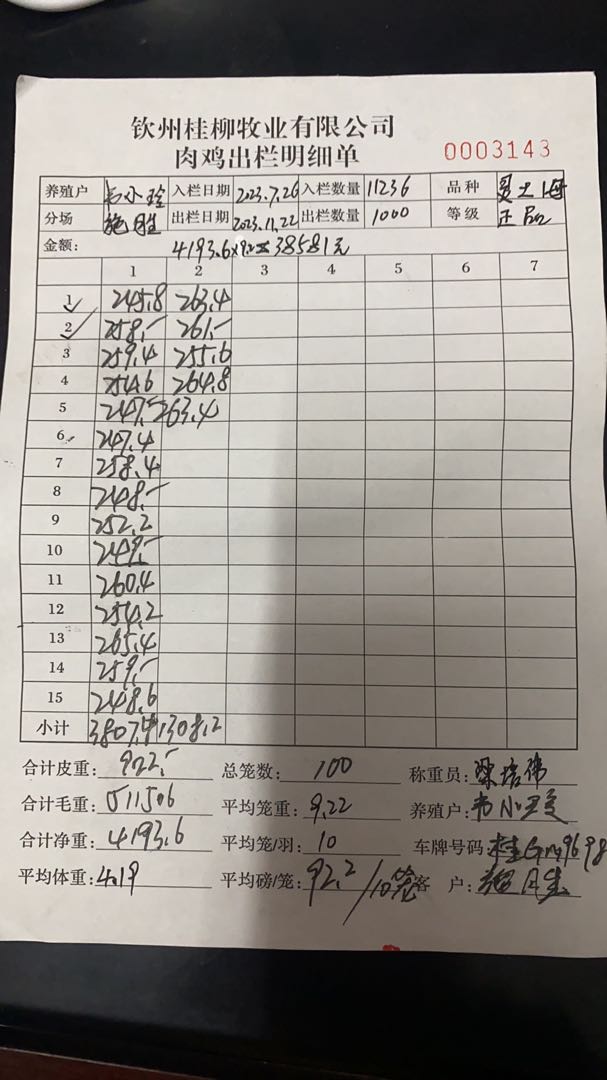 钦州桂柳牧业有限公司
肉鸡出栏明细单
0003143
养殖户 韦小玲 入栏日期 2023.7.26 入栏数量 11236 品种
分场 出栏日期 2023.11.22 出栏数量 1000 等级 正品
金额: 4193.6×9.2=38581元
1 2 3 4 5 6 7
1 245.8 263.4
2 258.- 261.-
3 259.4 255.6
4 254.6 264.8
5 247.- 263.4
6 247.4
7 258.4
8 248.-
9 252.2
10 249.-
11 260.4
12 254.2
13 265.4
14 259.-
15 248.6
小计 3807.4 1308.2
合计皮重: 922.- 总笼数: 100 称重员: 梁培伟
合计毛重: 5115.6 平均笼重: 9.22 养殖户: 韦小
合计净重: 4193.6 平均笼/羽: 10 车牌号码: 桂Gm9698
平均体重: 4.19 平均磅/笼: 92.2/10笼 客 户: